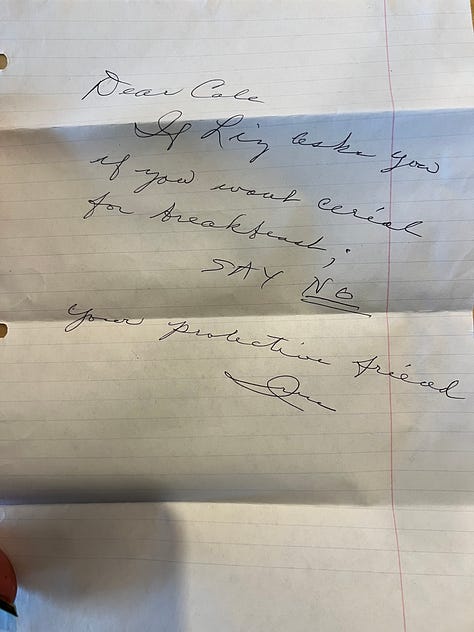 Dear Cole
If Liz asks you
if you want cereal
for breakfast;
SAY NO
your protective friend